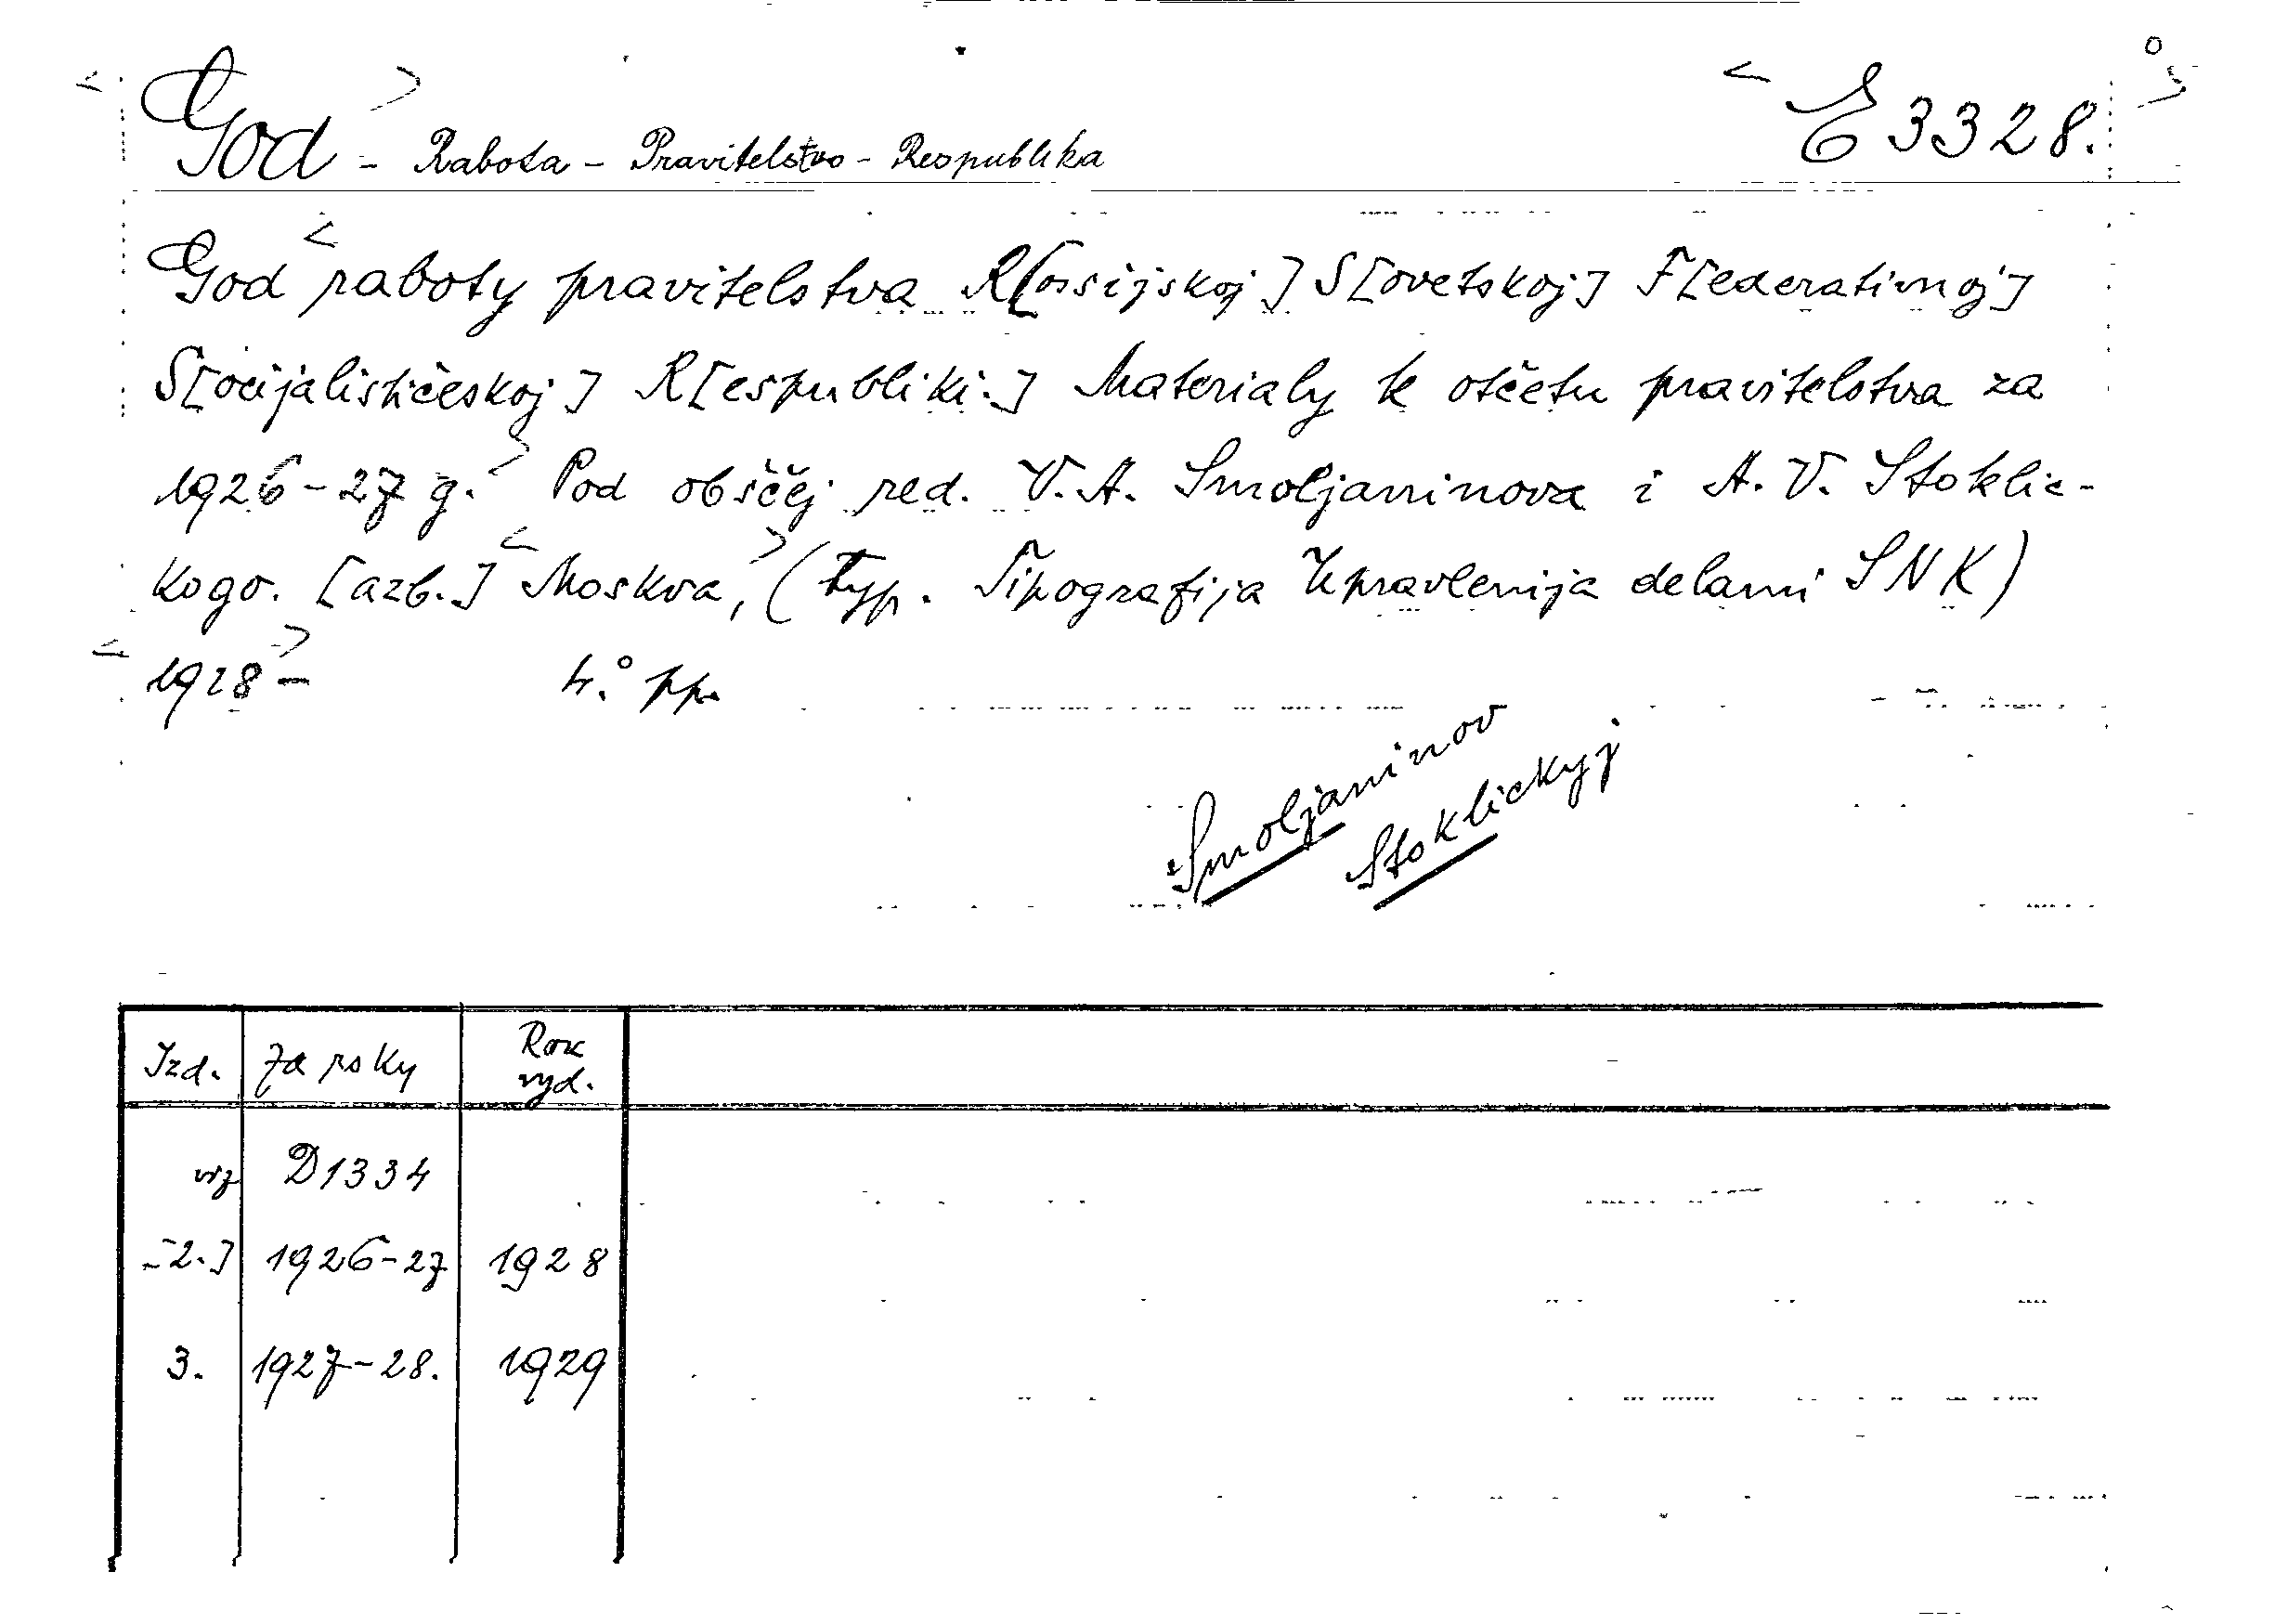 God - Rabota - Pravitelstvo - Respublika
E 3328.
God raboty pravitelstva R[ossijskoj] S[ovetskoj] F[ederativnoj]
S[ocijalističeskoj] R[espubliki.] Materialy k otčetu pravitelstva za
1926-27 g. Pod obščej red. V. A. Smoljaninova i A. V. Stoklic-
kogo. [azb.] Moskva, (typ. Tipografija Upravlenija delami SNK)
1928- 4.° pp.
Smoljaninov
Stoklickyj
Izd. Za roky Rok
vyd.
viz D1334
[2.] 1926-27 1928
3. 1927-28. 1929